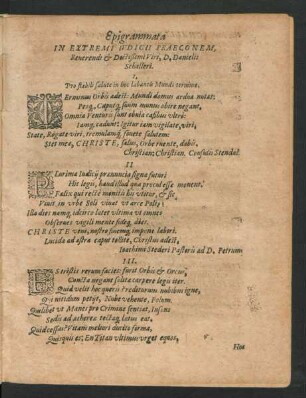 Epigrammata
IN EXTREMI IUDICII PRAECONEM,
Reverendi & Doctissimi Viri, D, Danielis
Schalleri.
I.
Pro stabili salute in hoc labantis Mundi termino.
Ultimus Orbis adest: Mundi domus ardua nutat:
Perq, Caputq, suum munus obire negant,
Omnia Venturi sunt
Iamq, cadunt: Igitur iam vigilate, viri,
State, Rogate viri, tremulamq, sonete salutem:
Stet mea, CHRISTE, salus, Orbe ruente, dabis,
Christian: Christian. Consulis Stendal:
II
Plurima Iudicij praenuncia signa futuri
Hic legis, haud illud qua procul esse monent.
Felix qui recte monita his vtitur, & sic
Vivit in vrbe Soli vivat vt arce Poli:
Illa dies namq, idcirco latet ultima vt omnes
Observet vigili mente fideq, dies.
CHRISTE veni, nostro finemq, impone labori.
Lucida ad astra caput tollite, Christus adest,
Ioachimi Stederi Pastoris ad D. Petrum
III.
rerum facies: furit Orbis & Orcus,
Cuncta negant solita carpere legis iter.
Quid velit hoc quaeris? Proditorum nubibus igne,
Qui nitidum petijt, Nube vehente, Polum.
Quilibet ut Manes pro Crimine sentiat,
Sedis ad aethereae tectaq, latus eat.
Quid cessas? Vitam meliori ducito forma,
Quisquis es: En Titan ultimus urget equos,